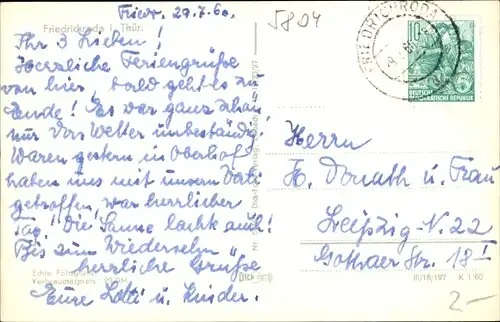 Friedr. 29.7.60.
5804
Friedrichroda i. Thür.
Ihr 3 Lieben!
Herzliche Feriengrüße
von hier, bald geht es zu
Ende! Es war ganz schön
nur das Wetter unbeständig!
Waren gestern in Oberhof
haben uns mit unserm Vati
getroffen, war herrlicher
Tag! Die Sonne lacht auch!
Bis zum "Wiedersehn"
herrliche Grüße
Eure Lotti u. Kinder.
Echte Fotografie
Verbraucherpreis
FRIEDRICHRODA
10
DEUTSCHE
DEMOKRATISCHE REPUBLIK
Herrn
H. Donath u. Frau
Leipzig-N. 22
Gothaer Str. 18 I
III/18/197 K 1/60
2-